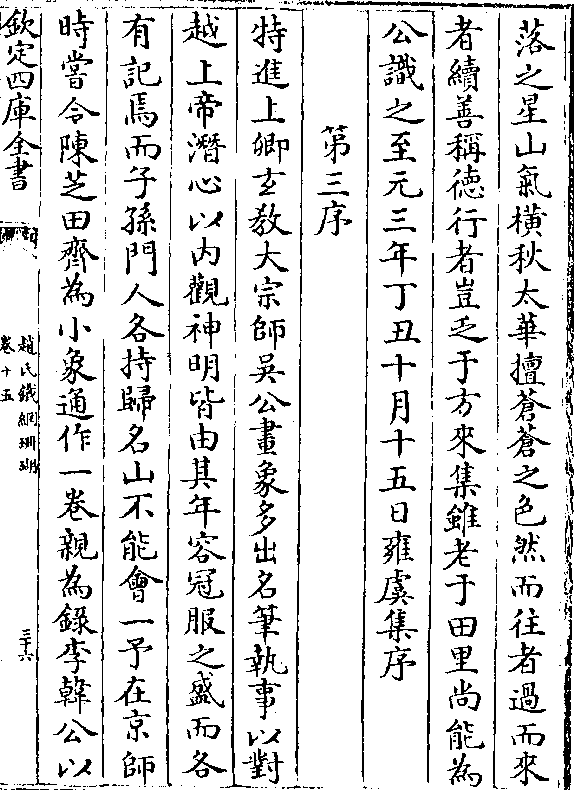 落之星山氣橫秋太華擅蒼蒼之色然而往者過而來
者續善稱德行者豈乏于方來集雖老于田里尚能為
公識之至元三年丁丑十月十五日雍虞集序
第三序
特進上卿玄教大宗師吳公畫象多出名筆執事以對
越上帝潛心以內觀神明皆由其年容冠服之盛而各
有記焉而子孫門人各持歸名山不能會一予在京師
時嘗令陳芝田齊為小象通作一卷親為錄李韓公以
欽定四庫全書
趙氏鐵網珊瑚
卷十五
三十六